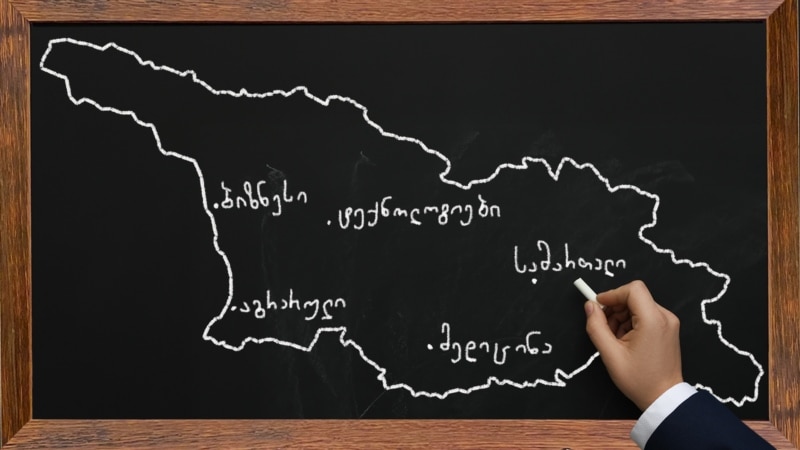 ბიზნესი
ტექნოლოგიები
სამართალი
აგრარული
მედიცინა